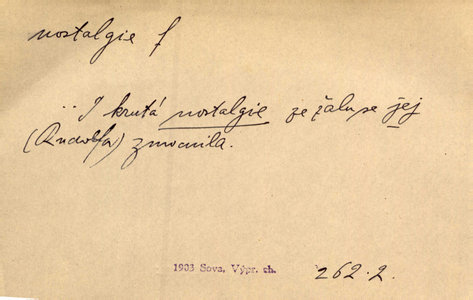 nostalgie f
.. I krutá nostalgie ze žalu se jej
(Rudolfa) zmocnila.
1903 Sova, Výpr. ch.
262.2.